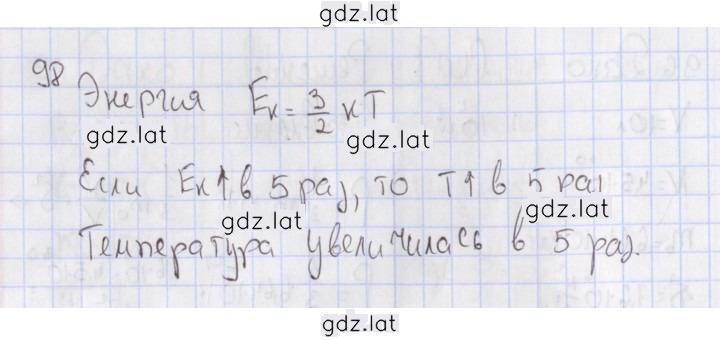 gdz.lat
98
Энергия Eк = 3/2 кT
gdz.lat gdz.lat
Если Eк↑ в 5 раз, то T↑ в 5 раз
gdz.lat gdz.lat
Температура увеличилась в 5 раз.
gdz.lat